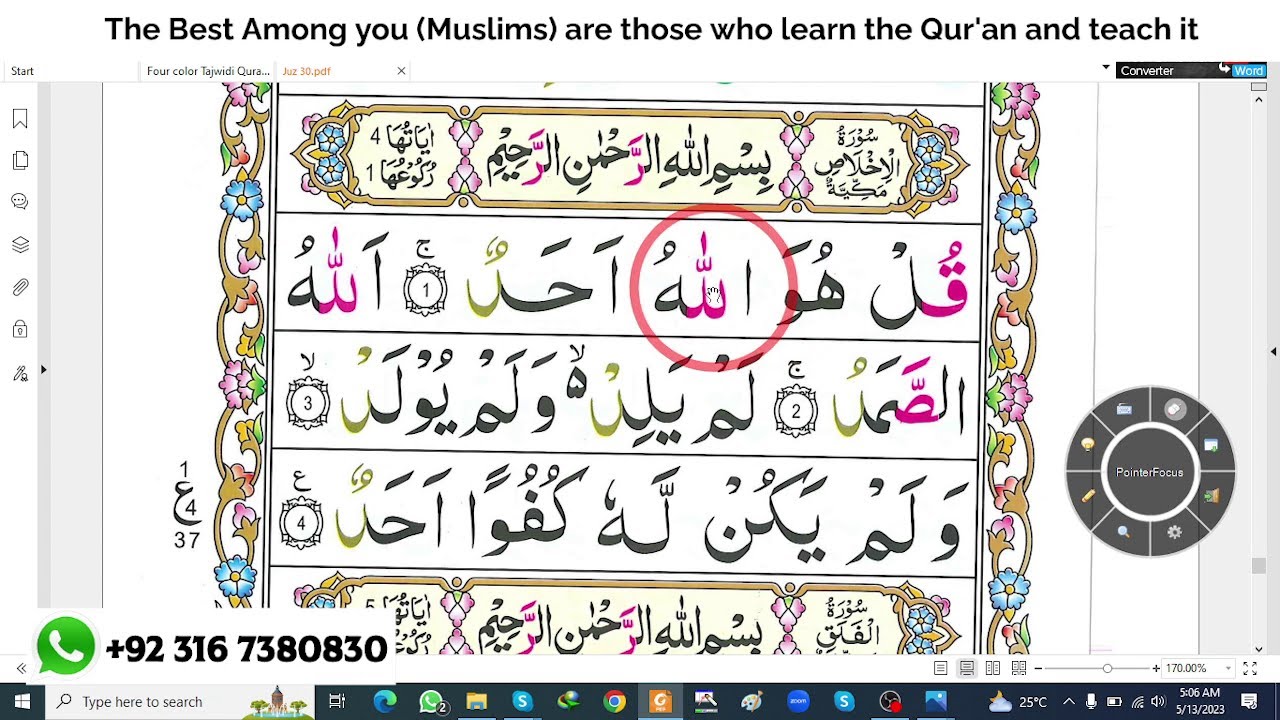 The Best Among you (Muslims) are those who learn the Qur'an and teach it
Start
Four color Tajwidi Qura...
Juz 30.pdf
Converter
Word
سُوْرَةُ الْاِخْلَاصِ مَكِّيَّةٌ
بِسْمِ اللّٰهِ الرَّحْمٰنِ الرَّحِيْمِ
اٰيَاتُهَا 4
رُكُوْعُهَا 1
قُلْ هُوَ اللّٰهُ اَحَدٌ ۚ 1 اَللّٰهُ
الصَّمَدُ ۚ 2 لَمْ يَلِدْ ۙ۬ وَلَمْ يُوْلَدْ ۙ 3
وَلَمْ يَكُنْ لَّهٗ كُفُوًا اَحَدٌ ع 4
1
ع
4
37
سُوْرَةُ الْفَلَقِ
بِسْمِ اللّٰهِ الرَّحْمٰنِ الرَّحِيْمِ
اٰيَاتُهَا 5
PointerFocus
+92 316 7380830
170.00%
Type here to search
2
zoom
25°C
5:06 AM
5/13/2023